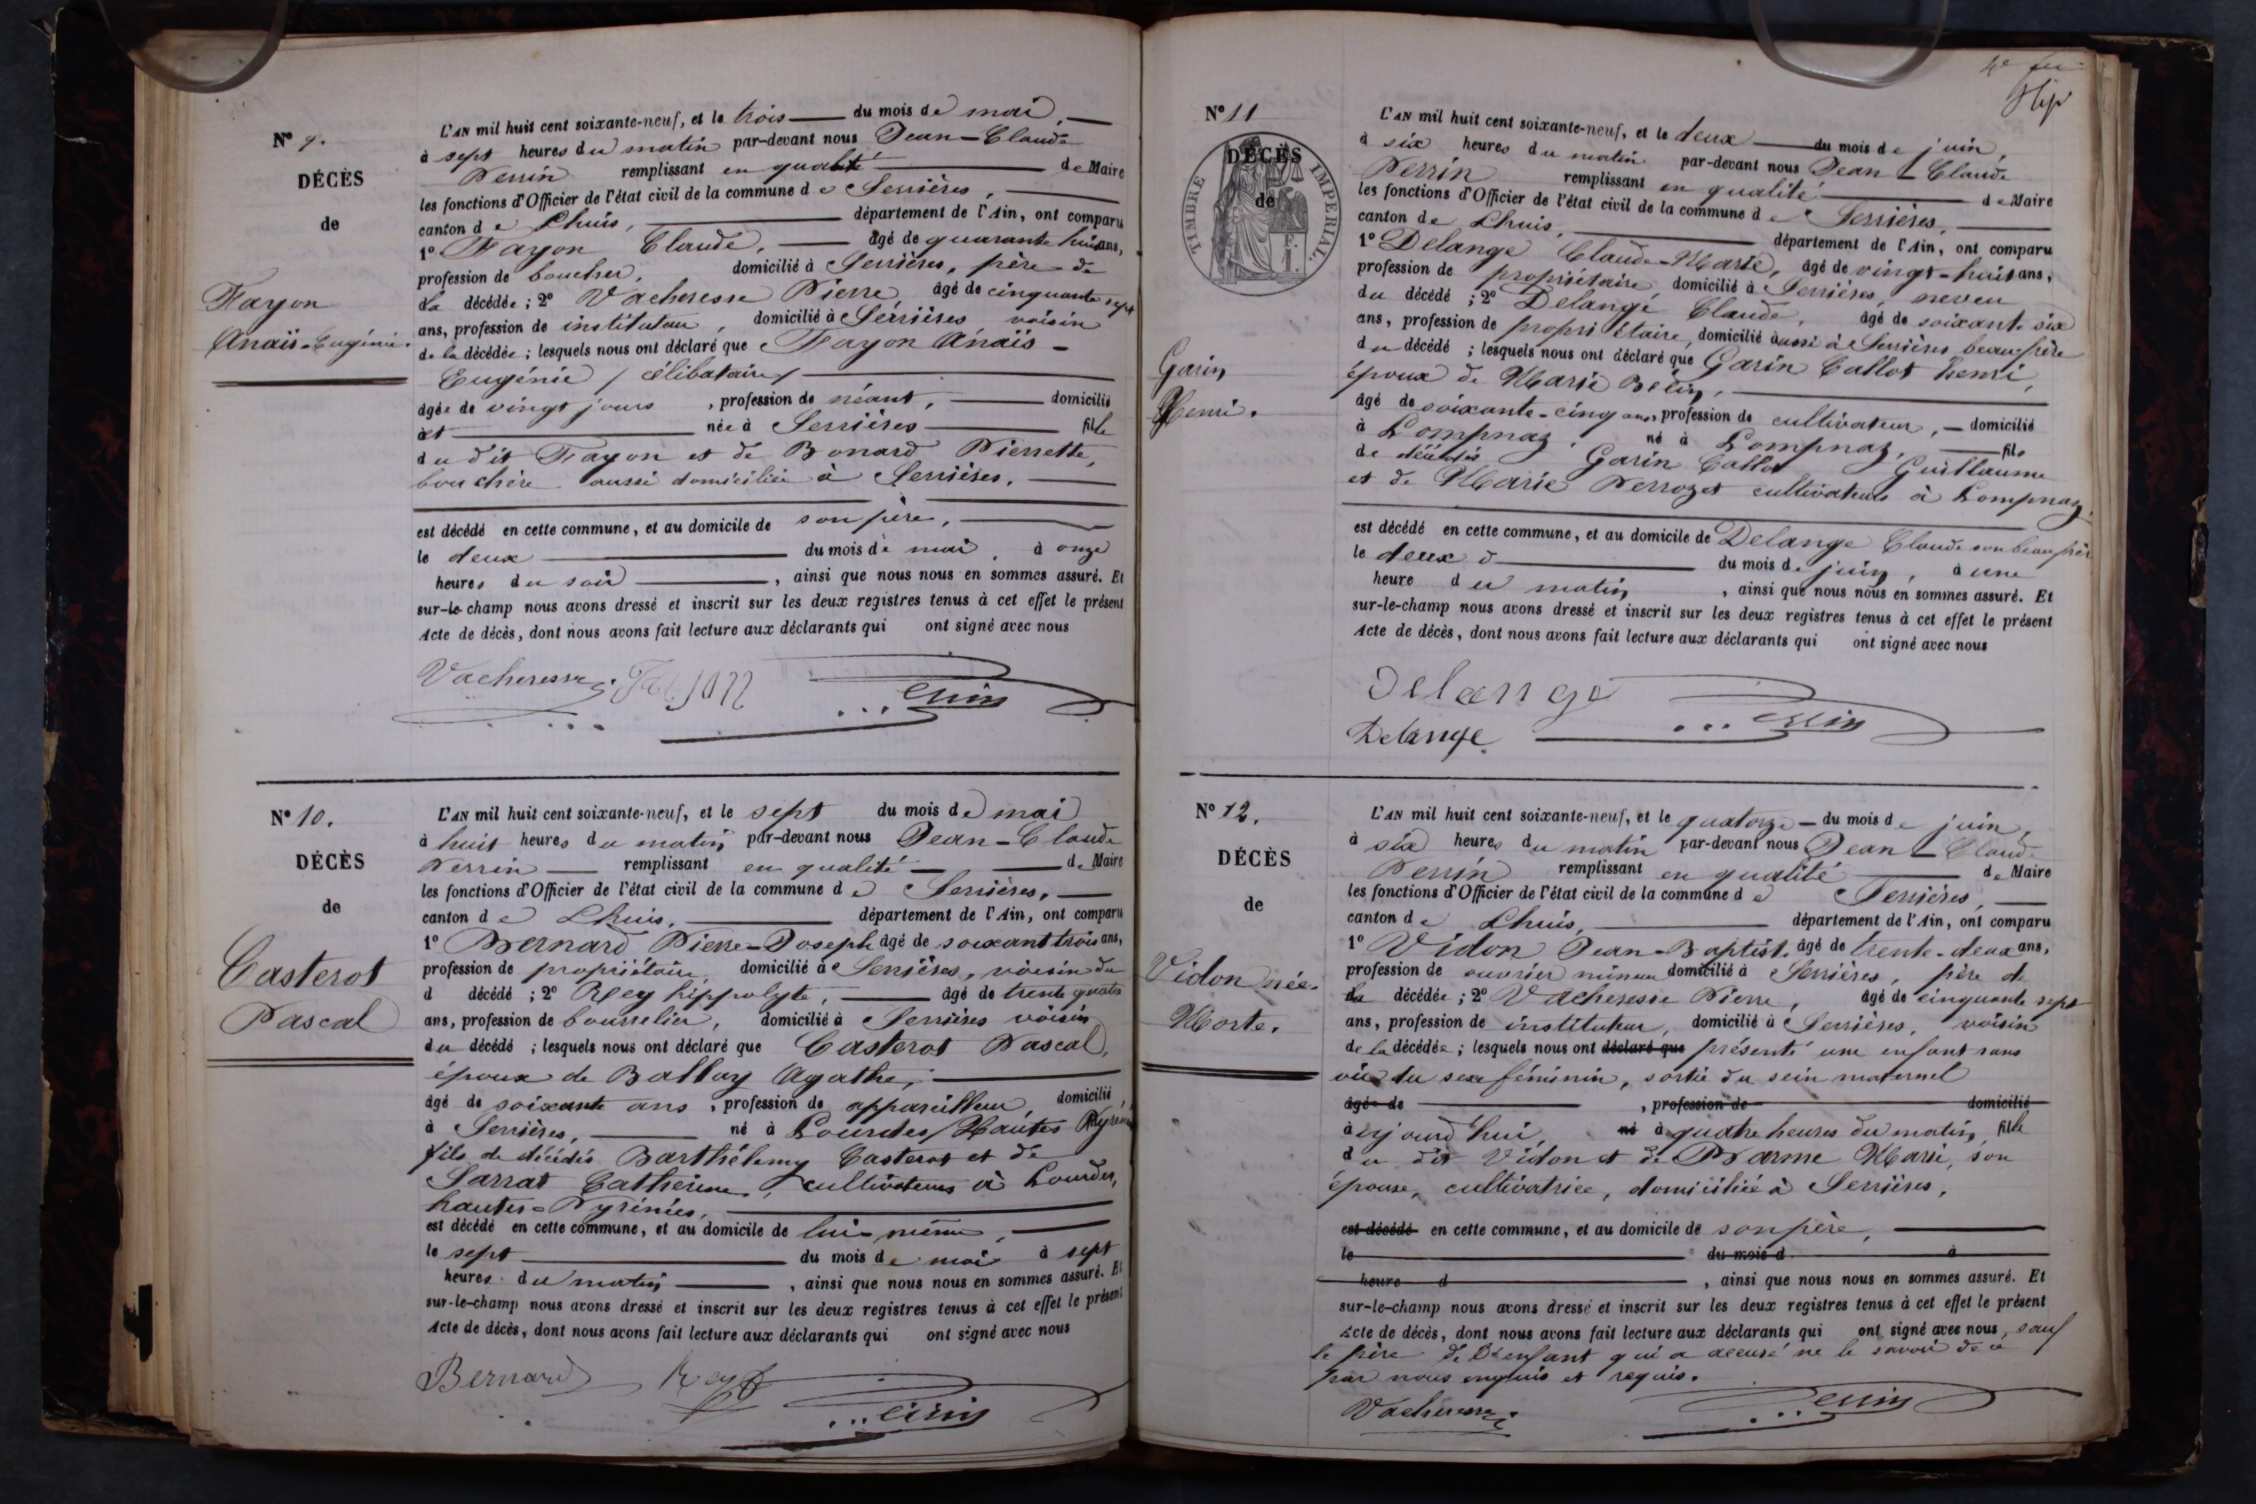 N° 9.
DÉCÈS
de
Fayon
Anaïs-Eugénie.
L'AN mil huit cent soixante-neuf, et le trois du mois de mai,
à sept heures du matin par-devant nous Jean-Claude
Perrin remplissant en qualité de Maire
les fonctions d'Officier de l'état civil de la commune de Serrières,
canton de Lhuis, département de l'Ain, ont comparu
1° Fayon Claude, âgé de quarante huit ans,
profession de boucher, domicilié à Serrières, père de
la décédée ; 2° Vacheresse Pierre, âgé de cinquante sept
ans, profession de instituteur, domicilié à Serrières voisin
de la décédée ; lesquels nous ont déclaré que Fayon Anaïs-
Eugénie / célibataire /
âgée de vingt jours, profession de néant, domicilié
et née à Serrières fille
du dit Fayon et de Bonard Pierrette,
bouchère aussi domiciliée à Serrières.
est décédé en cette commune, et au domicile de son père,
le deux du mois de mai, à onze
heures du soir, ainsi que nous nous en sommes assuré. Et
sur-le-champ nous avons dressé et inscrit sur les deux registres tenus à cet effet le présent
Acte de décès, dont nous avons fait lecture aux déclarants qui ont signé avec nous
Vacheresse Fayon Perrin
N° 10.
DÉCÈS
de
Casterot
Pascal
L'AN mil huit cent soixante-neuf, et le sept du mois de mai
à huit heures du matin par-devant nous Jean-Claude
Perrin remplissant en qualité de Maire
les fonctions d'Officier de l'état civil de la commune de Serrières,
canton de Lhuis, département de l'Ain, ont comparu
1° Bernard Pierre-Joseph âgé de soixante trois ans,
profession de propriétaire, domicilié à Serrières, voisin du
d décédé ; 2° Rey hippolyte, âgé de trente quatre
ans, profession de bourrelier, domicilié à Serrières voisin
du décédé ; lesquels nous ont déclaré que Casterot Pascal,
époux de Ballay Agathe,
âgé de soixante ans, profession de appareilleur, domicilié
à Serrières, né à Lourdes / Hautes Pyrénées
fils de décédés Barthélemy Casterot et de
Sarrat Catherine, cultivateurs à Lourdes,
hautes-Pyrénées,
est décédé en cette commune, et au domicile de lui-même,
le sept du mois de mai à sept
heures du matin, ainsi que nous nous en sommes assuré. Et
sur-le-champ nous avons dressé et inscrit sur les deux registres tenus à cet effet le présent
Acte de décès, dont nous avons fait lecture aux déclarants qui ont signé avec nous
Bernard Rey Perrin
4e
N° 11
TIMBRE IMPÉRIAL.
DÉCÈS
de
Garin
Henri.
L'AN mil huit cent soixante-neuf, et le deux du mois de juin,
à six heures du matin par-devant nous Jean-Claude
Perrin remplissant en qualité de Maire
les fonctions d'Officier de l'état civil de la commune de Serrières,
canton de Lhuis, département de l'Ain, ont comparu
1° Delange Claude-Marie, âgé de vingt-huit ans,
profession de propriétaire, domicilié à Serrières, neveu
du décédé ; 2° Delange Claude, âgé de soixante six
ans, profession de propriétaire, domicilié aussi à Serrières beau-frère
du décédé ; lesquels nous ont déclaré que Garin Callot henri,
époux de Marie Bélin,
âgé de soixante-cinq ans, profession de cultivateur, domicilié
à Lompnaz, né à Lompnaz, fils
de décédés Garin Callot Guillaume
et de Marie Perrozet cultivateurs à Lompnaz,
est décédé en cette commune, et au domicile de Delange Claude son beau frère
le deux d du mois de juin, à une
heure du matin, ainsi que nous nous en sommes assuré. Et
sur-le-champ nous avons dressé et inscrit sur les deux registres tenus à cet effet le présent
Acte de décès, dont nous avons fait lecture aux déclarants qui ont signé avec nous
Delange
Delange Perrin
N° 12.
DÉCÈS
de
Vidon née-
Morte.
L'AN mil huit cent soixante-neuf, et le quatorze du mois de juin,
à six heures du matin par-devant nous Jean-Claude
Perrin remplissant en qualité de Maire
les fonctions d'Officier de l'état civil de la commune de Serrières,
canton de Lhuis, département de l'Ain, ont comparu
1° Vidon Jean-Baptiste âgé de trente-deux ans,
profession de ouvrier mineur domicilié à Serrières, père de
la décédée ; 2° Vacheresse Pierre, âgé de cinquante sept
ans, profession de instituteur, domicilié à Serrières, voisin
de la décédée ; lesquels nous ont déclaré que présenté une enfant sans
vie du sexe féminin, sortie du sein maternel
âgé de , profession de domicilié
aujourd'hui, né à quatre heures du matin, fille
du dit Vidon et de Barme Marie, son
épouse, cultivatrice, domiciliée à Serrières,
est décédé en cette commune, et au domicile de son père,
le du mois d à
heure d , ainsi que nous nous en sommes assuré. Et
sur-le-champ nous avons dressé et inscrit sur les deux registres tenus à cet effet le présent
Acte de décès, dont nous avons fait lecture aux déclarants qui ont signé avec nous, sauf
le père de l'enfant qui a accusé ne le savoir de ce
par nous enquis et requis.
Vacheresse Perrin